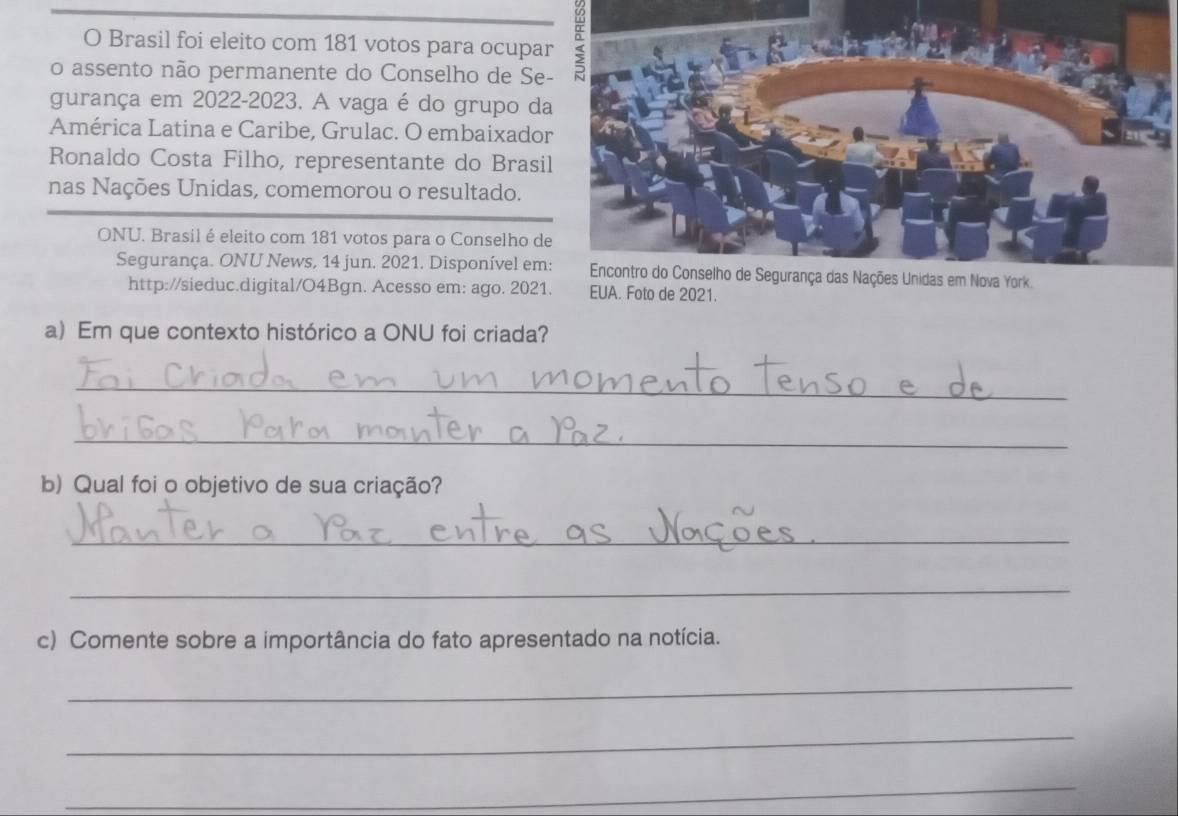 O Brasil foi eleito com 181 votos para ocupar
o assento não permanente do Conselho de Se-
gurança em 2022-2023. A vaga é do grupo da
América Latina e Caribe, Grulac. O embaixador
Ronaldo Costa Filho, representante do Brasil
nas Nações Unidas, comemorou o resultado.
ONU. Brasil é eleito com 181 votos para o Conselho de
Segurança. ONU News, 14 jun. 2021. Disponível em:
http://sieduc.digital/O4Bgn. Acesso em: ago. 2021.
ZUMA PRESS
Encontro do Conselho de Segurança das Nações Unidas em Nova York.
EUA. Foto de 2021.
a) Em que contexto histórico a ONU foi criada?
Foi criada em um momento tenso e de
brigas para manter a paz.
b) Qual foi o objetivo de sua criação?
Manter a paz entre as Nações.
c) Comente sobre a importância do fato apresentado na notícia.